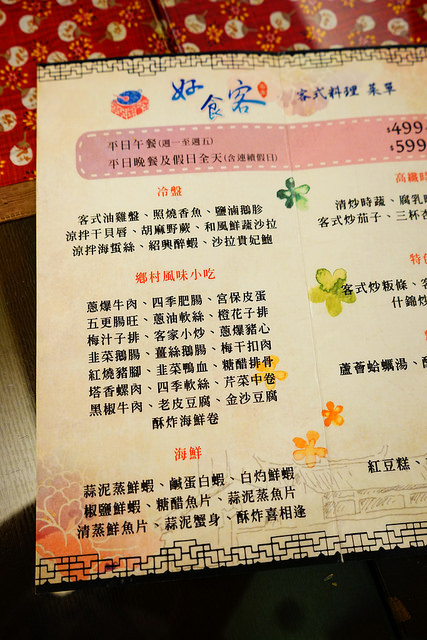 好食客
客式料理 菜單
平日午餐(週一至週五)
$499
平日晚餐及假日全天(含連續假日)
$599
冷盤
客式油雞盤、照燒香魚、鹽滷鵝胗
涼拌干貝唇、胡麻野蕨、和風鮮蔬沙拉
涼拌海蜇絲、紹興醉蝦、沙拉貴妃鮑
鄉村風味小吃
蔥爆牛肉、四季肥腸、宮保皮蛋
五更腸旺、蔥油軟絲、橙花子排
梅汁子排、客家小炒、蔥爆豬心
韭菜鵝腸、薑絲鵝腸、梅干扣肉
紅燒豬腳、韭菜鴨血、糖醋排骨
塔香螺肉、四季軟絲、芹菜中卷
黑椒牛肉、老皮豆腐、金沙豆腐
酥炸海鮮卷
海鮮
蒜泥蒸鮮蝦、鹹蛋白蝦、白灼鮮蝦
椒鹽鮮蝦、糖醋魚片、蒜泥蒸魚片
清蒸鮮魚片、蒜泥蟹身、酥炸喜相逢
高纖
清炒時蔬、腐乳
客式炒茄子、三杯
特
客式炒粄條、客
什錦炒
蘆薈蛤蠣湯、
紅豆糕、